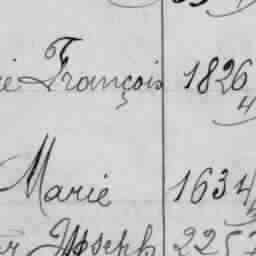 François 1826
4
Marie 1634
Joseph 225